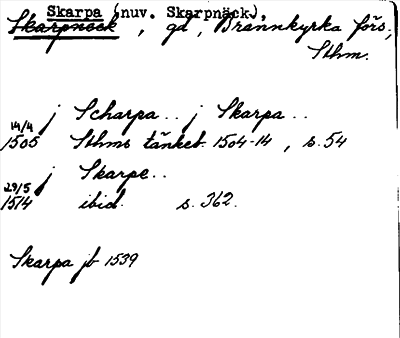 Skarpa (nuv. Skarpnäck),
Skarpnäck, gd, Brännkyrka förs,
Sthm.
j Scharpa.. j Skarpa..
14/4
1505 Sthms tänkeb. 1504-14, s. 54
j Skarpe..
29/5
1514 ibid. s. 362.
Skarpa jb 1539